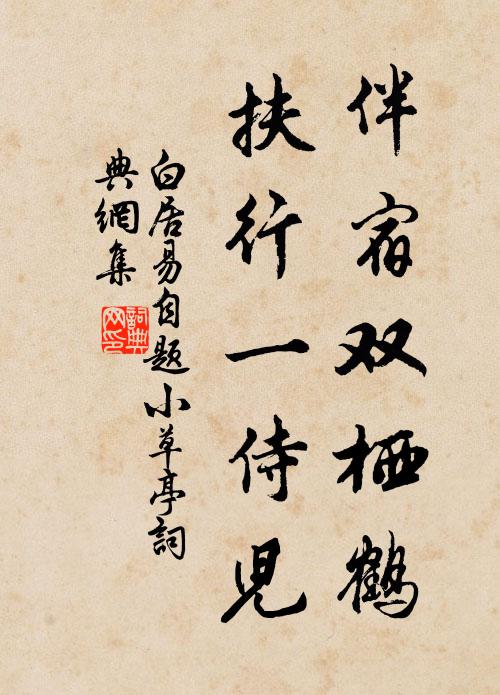 伴宿双栖鹤
扶行一侍児
白居易自题小草亭詞
典網集
詞典网印